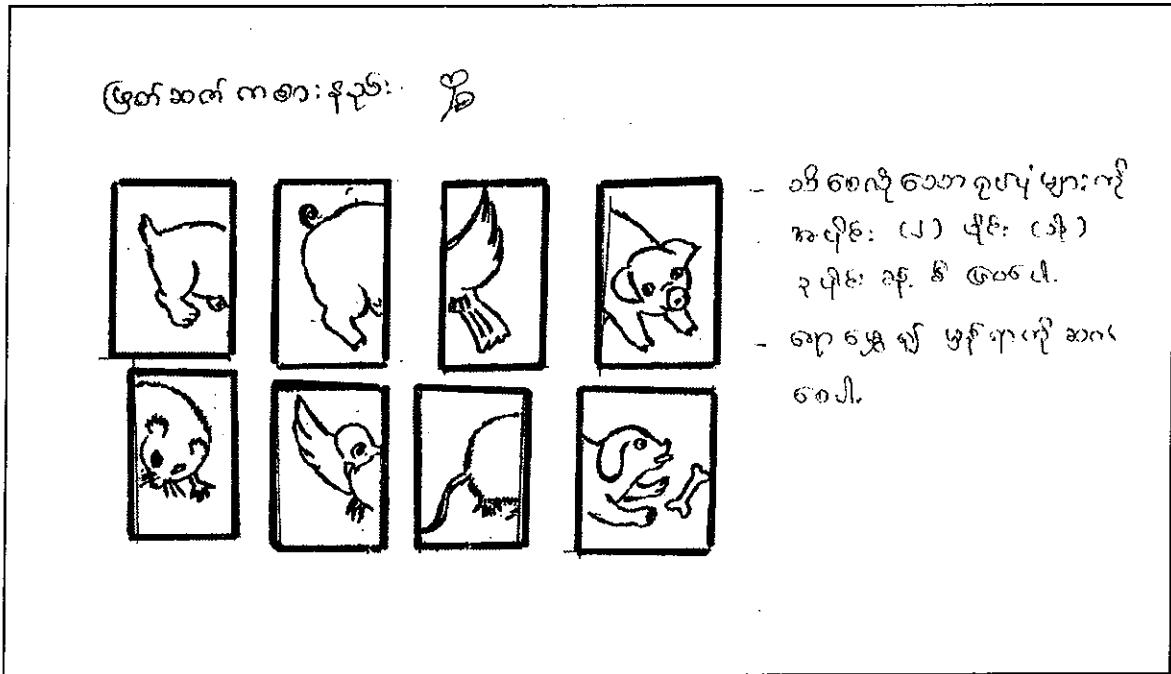 ဖြတ်ဆက် ကစားနည်း
- သိစေလိုသော ရုပ်ပုံများကို
အပိုင်း (၂) ပိုင်း (သို့)
၃ ပိုင်း ခန့်
- ရောမွှေ၍ မှန်ရာကို ဆက်
စေပါ.